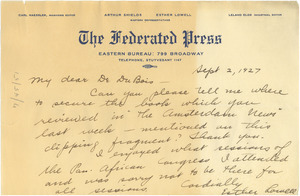 CARL HAESSLER, MANAGING EDITOR
ARTHUR SHIELDS ESTHER LOWELL
EASTERN REPRESENTATIVES
LELAND OLDS, INDUSTRIAL EDITOR
The Federated Press
EASTERN BUREAU: 799 BROADWAY
TELEPHONE, STUYVESANT
Sept 2, 1927
My dear Dr DuBois -
Can you please tell me where
to secure the book which you
reviewed in "The Amsterdam News"
last week - mentioned on this
clipping fragment? Thank you.
I enjoyed what sessions of
the Pan. African Congress I attended
and was sorry not to be there for
all sessions.
Cordially
Esther Lowell